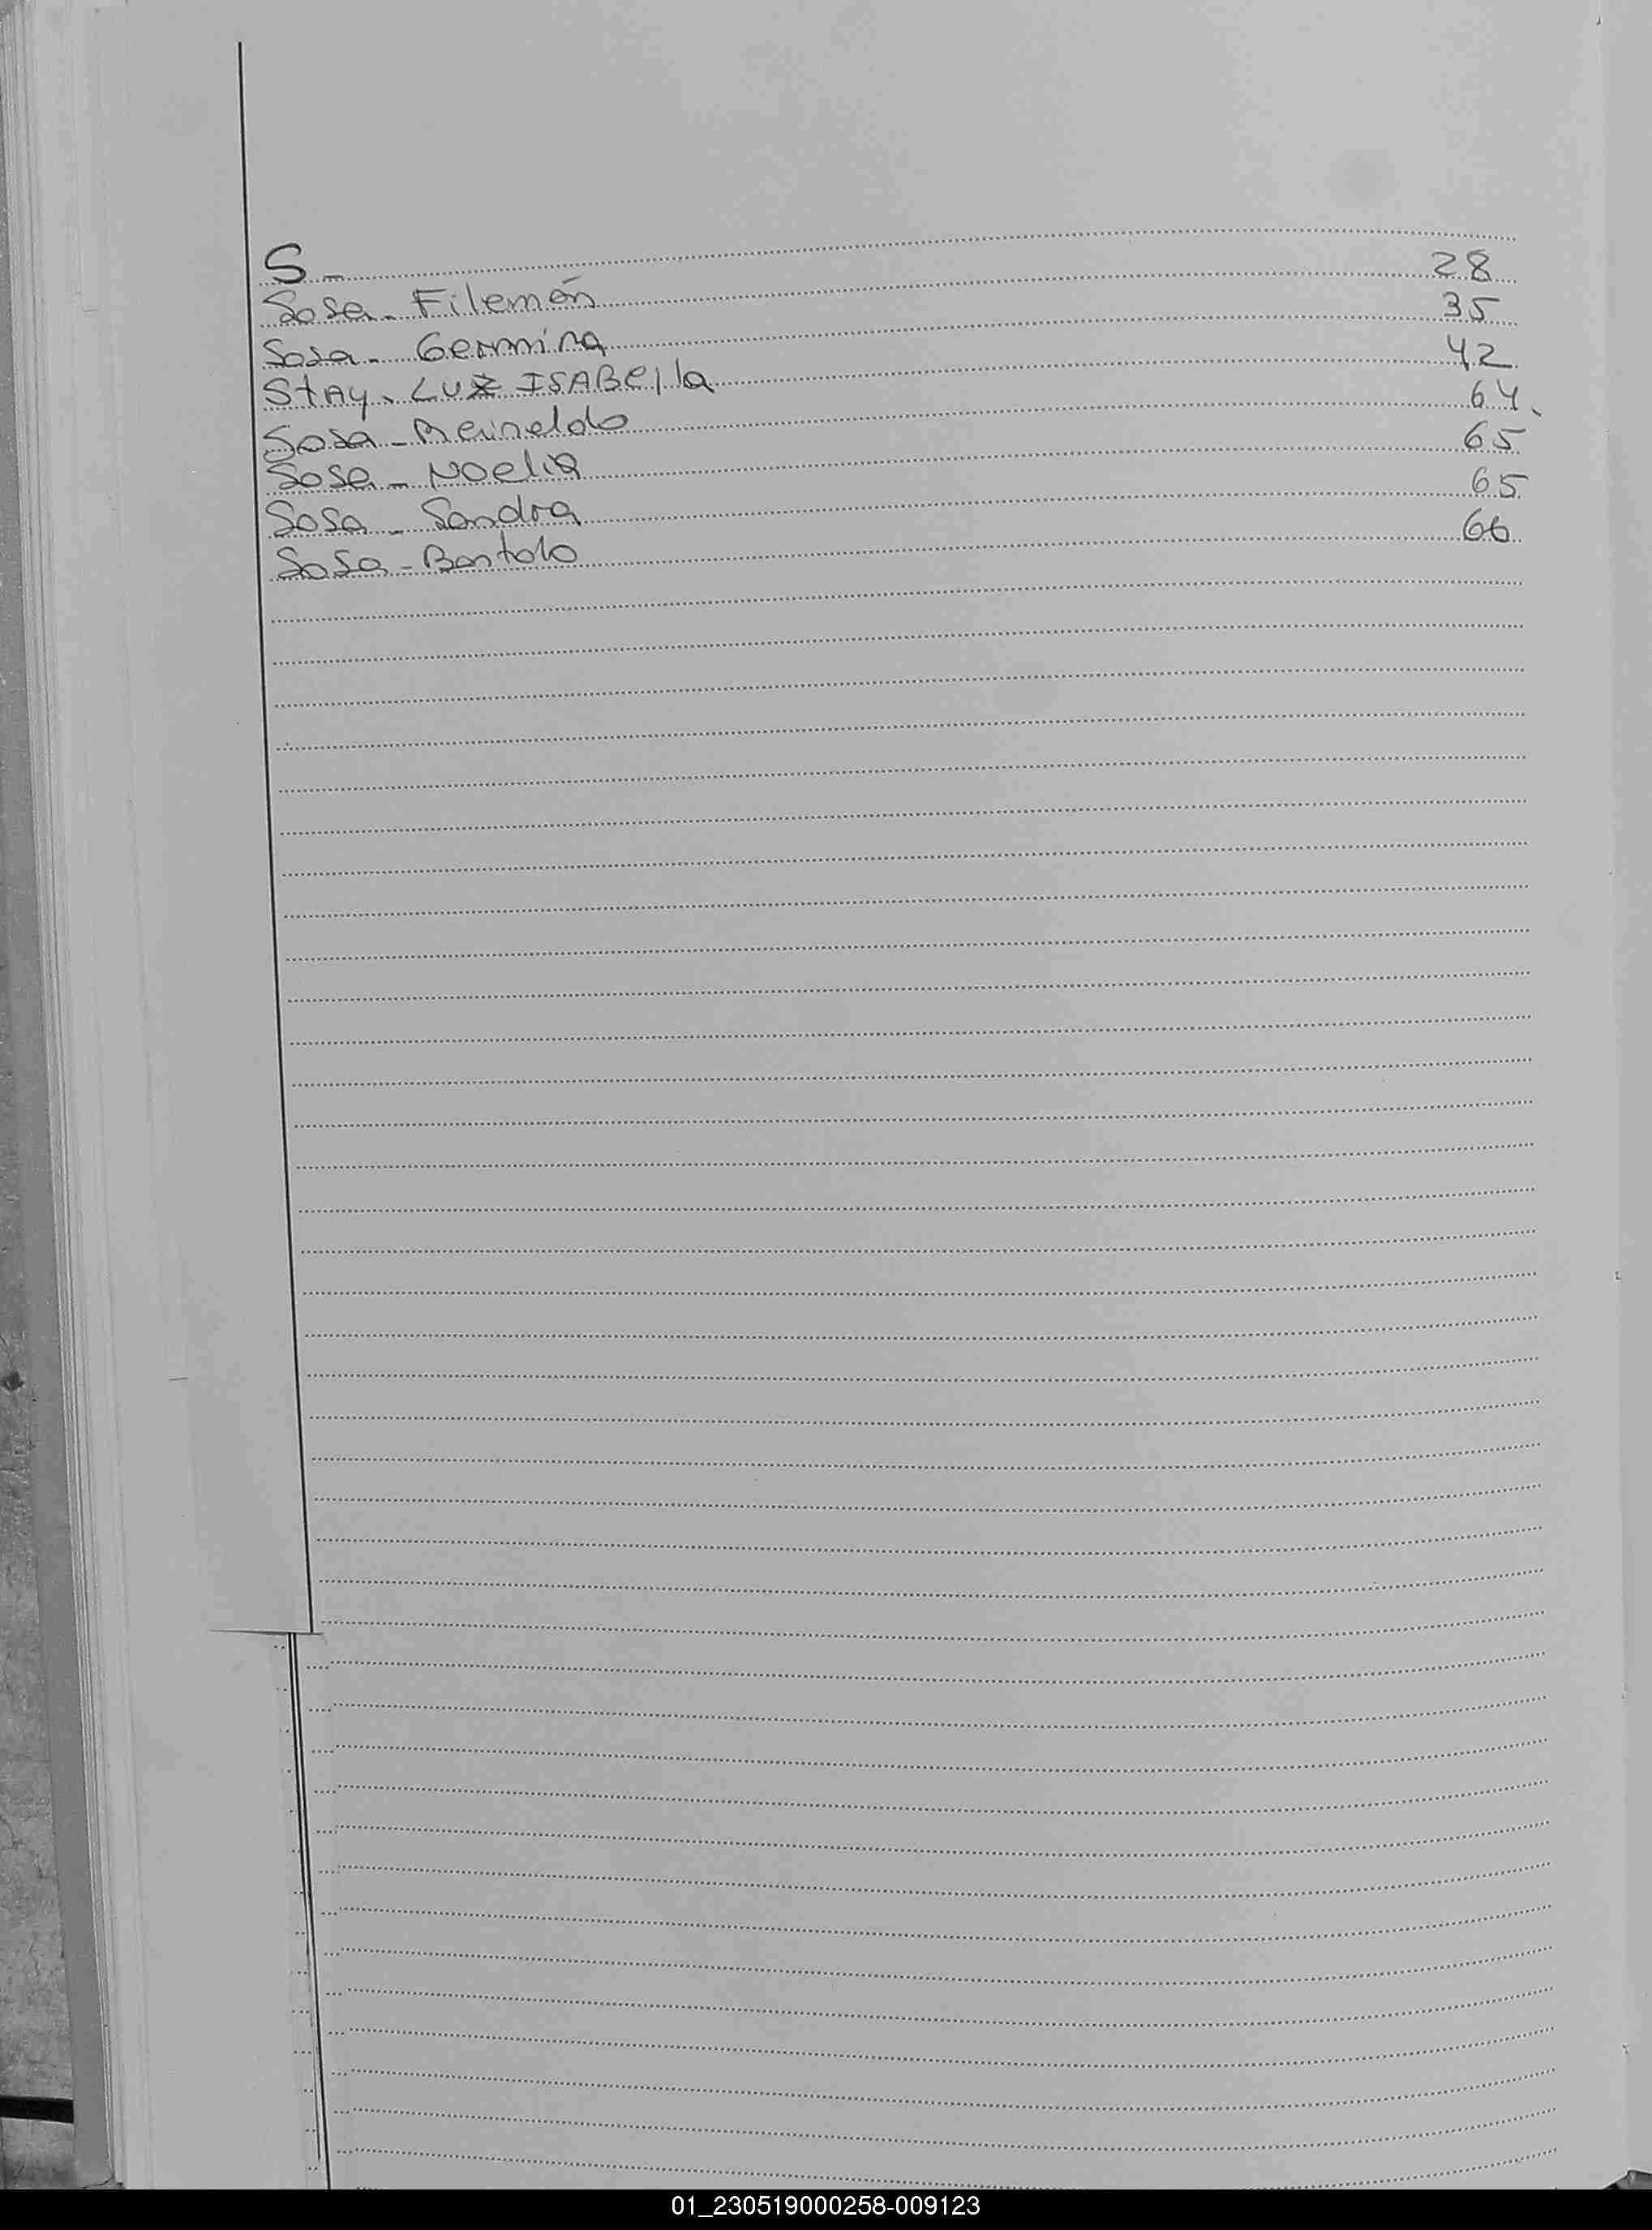 S-
Sosa - Filemón 28
Sosa - Germina 35
StAy. LUZ ISABella 42
Sosa - Reineldo 64.
Sosa - Noelia 65
Sosa - Sandra 65
Sosa - Bartolo 66
01_230519000258-009123